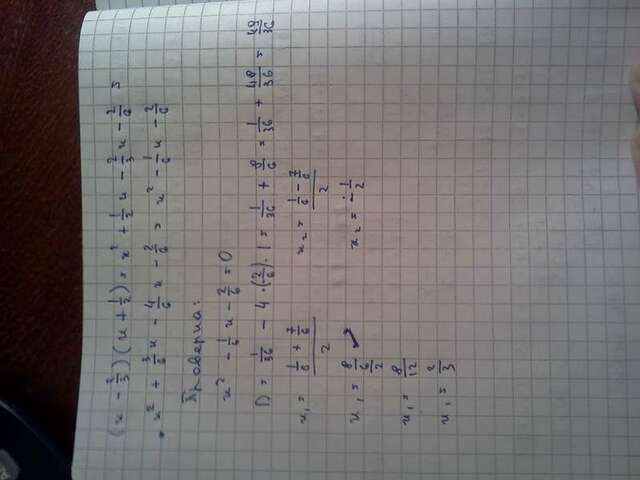 (x - 2/3)(x + 1/2) = x² + 1/2 x - 2/3 x - 2/6 =
= x² + 3/6 x - 4/6 x - 2/6 = x² - 1/6 x - 2/6
Проверка:
x² - 1/6 x - 2/6 = 0
D = 1/36 - 4 · (2/6) · 1 = 1/36 + 8/6 = 1/36 + 48/36 = 49/36
x₁ = (1/6 + 7/6)/2 x₂ = (1/6 - 7/6)/2
x₁ = (8/6)/2 x₂ = - 1/2
x₁ = 8/12
x₁ = 2/3